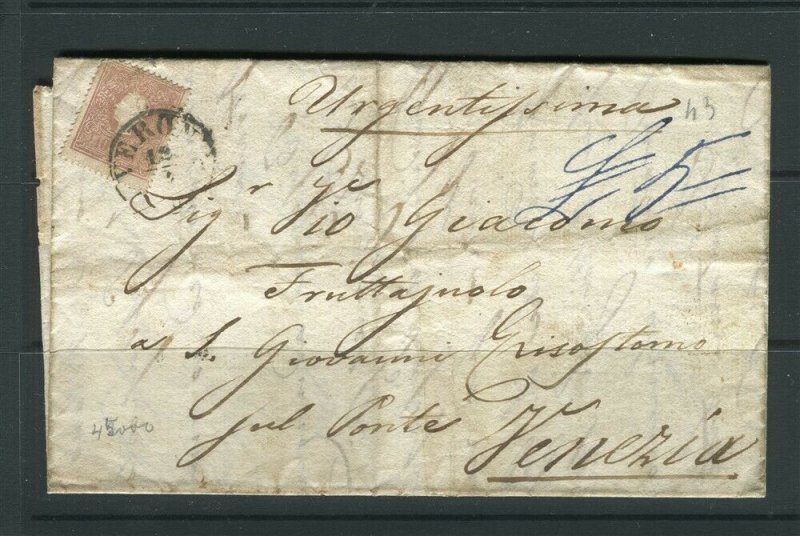 Urgentissima
43
VERONA
18
£ 5
Sig.r Vio Giacomo
Fruttajuolo
a S. Giovanni Grisostomo
sul Ponte
Venezia
45000